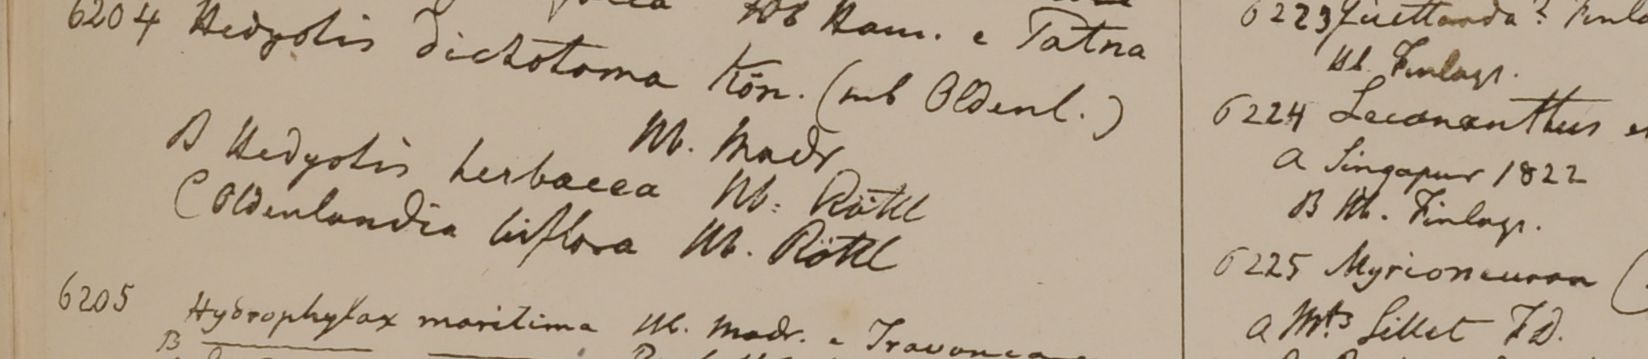 Hb Ham. e Patna
6204 Hedyotis dichotoma Kön. (sub Oldenl.)
Hb. Madr
B Hedyotis herbacea Hb. Röttl
C Oldenlandia biflora Hb. Röttl
6205 Hydrophylax maritima Hb. Madr. e Travanca
B
6223 Guettarda? Finla
Hb. Finlays.
6224 Lecananthus
a Singapur 1822
B Hb. Finlays.
6225 Myrioneuron (
a Mts Sillet FD.